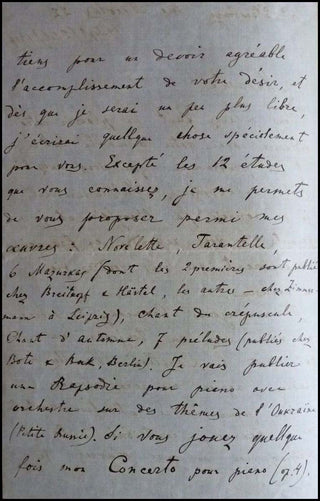 tiens pour un devoir agréable
l'accomplissement de votre désir, et
dès que je serai un peu plus libre,
j'écrirai quellque chose spécialement
pour vous. Excepté les 12 études
que vous connaissez, je me permets
de vous proposer permi mes
œuvres: Novelette, Tarantelle,
6 Mazurkas (dont les 2 premières sont publiés
chez Breitkopf & Härtel, les autres – chez Zimmer-
mann à Leipzig), chant du crépuscule,
Chant d'automne, 7 préludes (publiés chez
Bote & Bock, Berlin). Je vais publier
une Rapsodie pour piano avec
orchestre sur des thêmes de l'Oukraïne
(Petite Russie). Si vous jouez quellque
fois mon Concerto pour piano (op. 4).